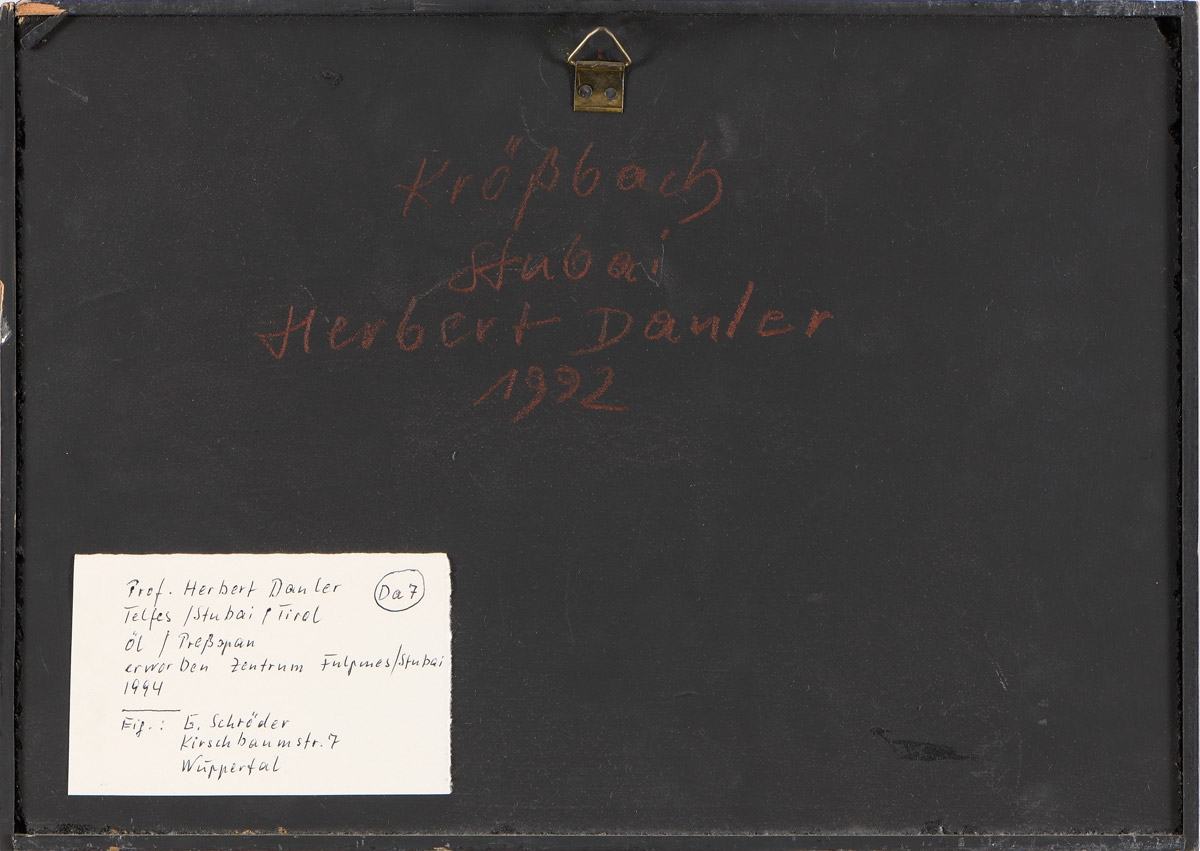 Krößbach
Stubai
Herbert Danler
1992
Prof. Herbert Danler
Da7
Telfes / Stubai / Tirol
Öl / Preßspan
erworben Zentrum Fulpmes/Stubai
1994
Eig.: G. Schröder
Kirschbaumstr. 7
Wuppertal